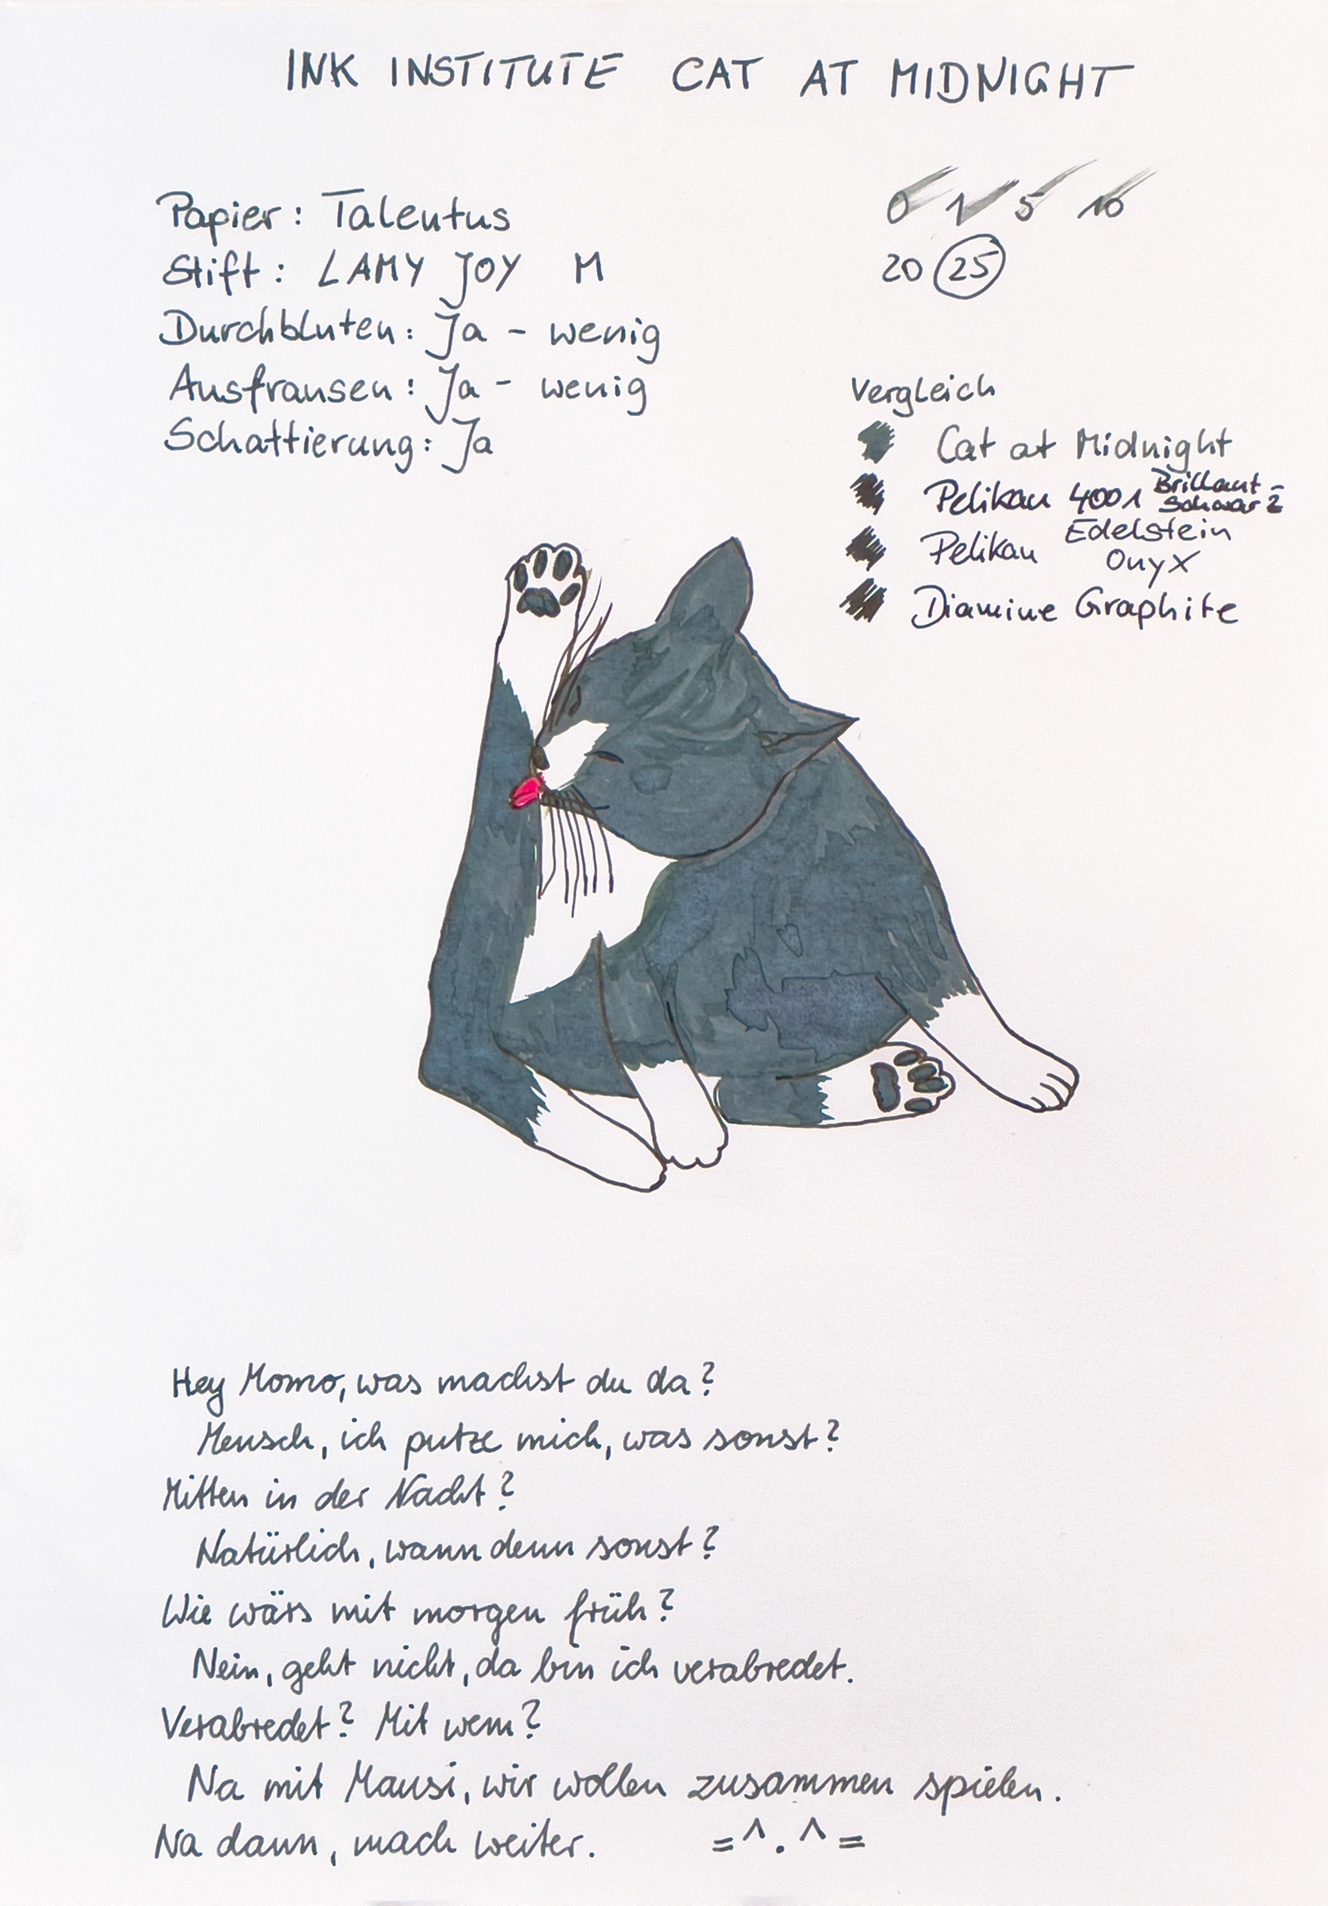 INK INSTITUTE CAT AT MIDNIGHT
Papier: Talentus
Stift: LAMY JOY M
Durchbluten: Ja - wenig
Ausfransen: Ja - wenig
Schattierung: Ja
0 1 5 10
20 25
Vergleich
Cat at Midnight
Pelikan 4001 Brillant-
Schwarz
Pelikan Edelstein
Onyx
Diamine Graphite
Hey Momo, was machst du da?
Mensch, ich putze mich, was sonst?
Mitten in der Nacht?
Natürlich, wann denn sonst?
Wie wärs mit morgen früh?
Nein, geht nicht, da bin ich verabredet.
Verabredet? Mit wem?
Na mit Mausi, wir wollen zusammen spielen.
Na dann, mach weiter. =^.^=